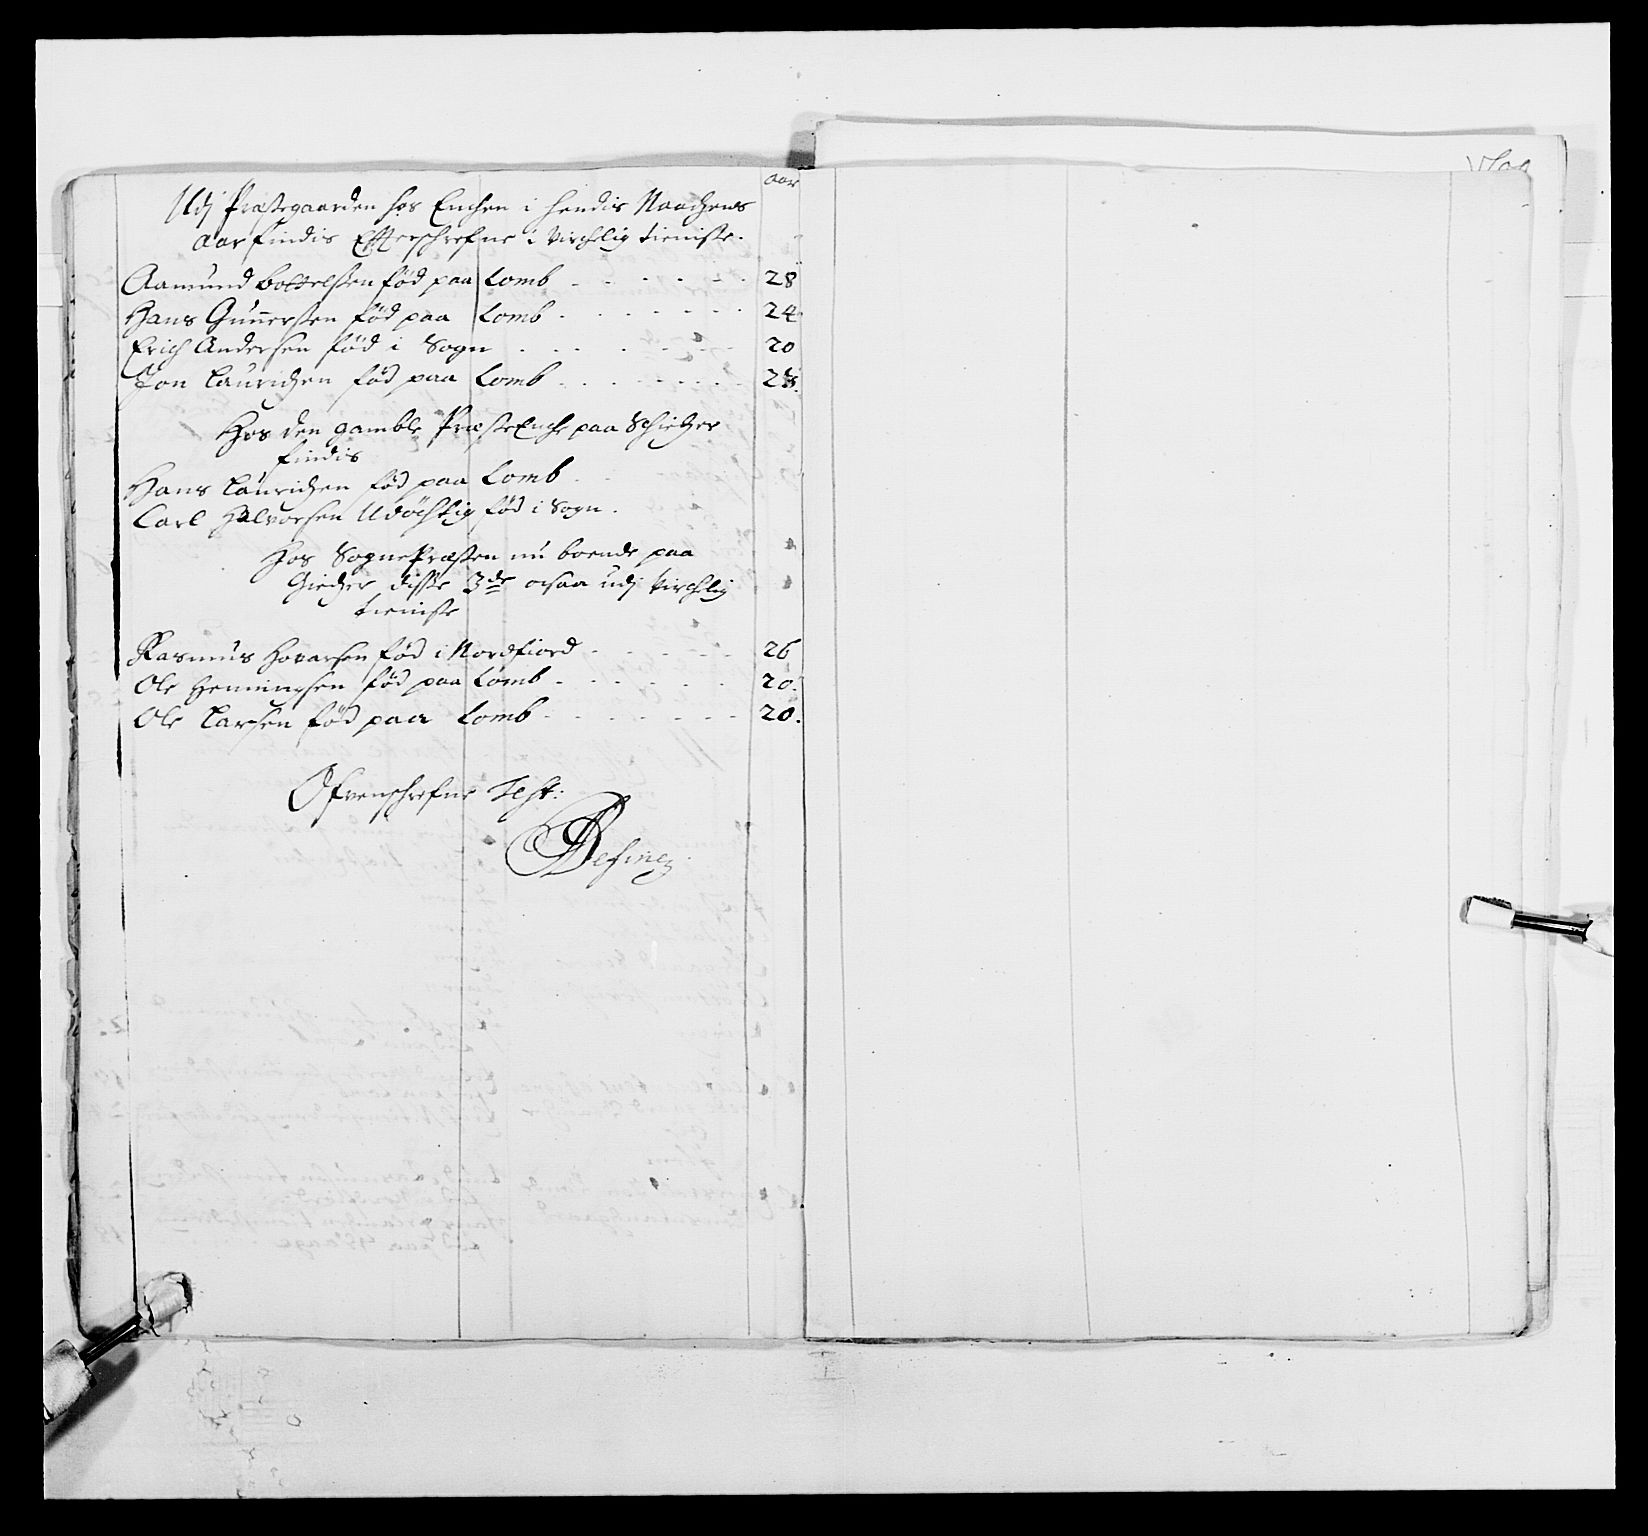 aar
Udj Præstegaarden hos Enchen i hendis Naadzens
aar findis Efterschrefne i Virchelig tieniste.
Aamund bottelssen fød paa Lomb 28
Hans Gunnerssen fød paa Lomb 24
Erich Andersen fød i Sogn 20
Jon Lauridzen fød paa Lomb
Hos den gamble PræsteEnche paa Schielzer
findis
Hans Lauridzen fød paa Lomb
Carl Halvorsen Udöchtig fød i Sogn.
Hos SognePræsten nu boende paa
disse 3de ocsaa udj Virchelig
tieniste
Rasmus Hovarsen fød i Nordfiord 26
Ole Henningsen fød paa Lomb 20.
Ole Larsen fød paa Lomb 20.
Ofvenschrefne Test: